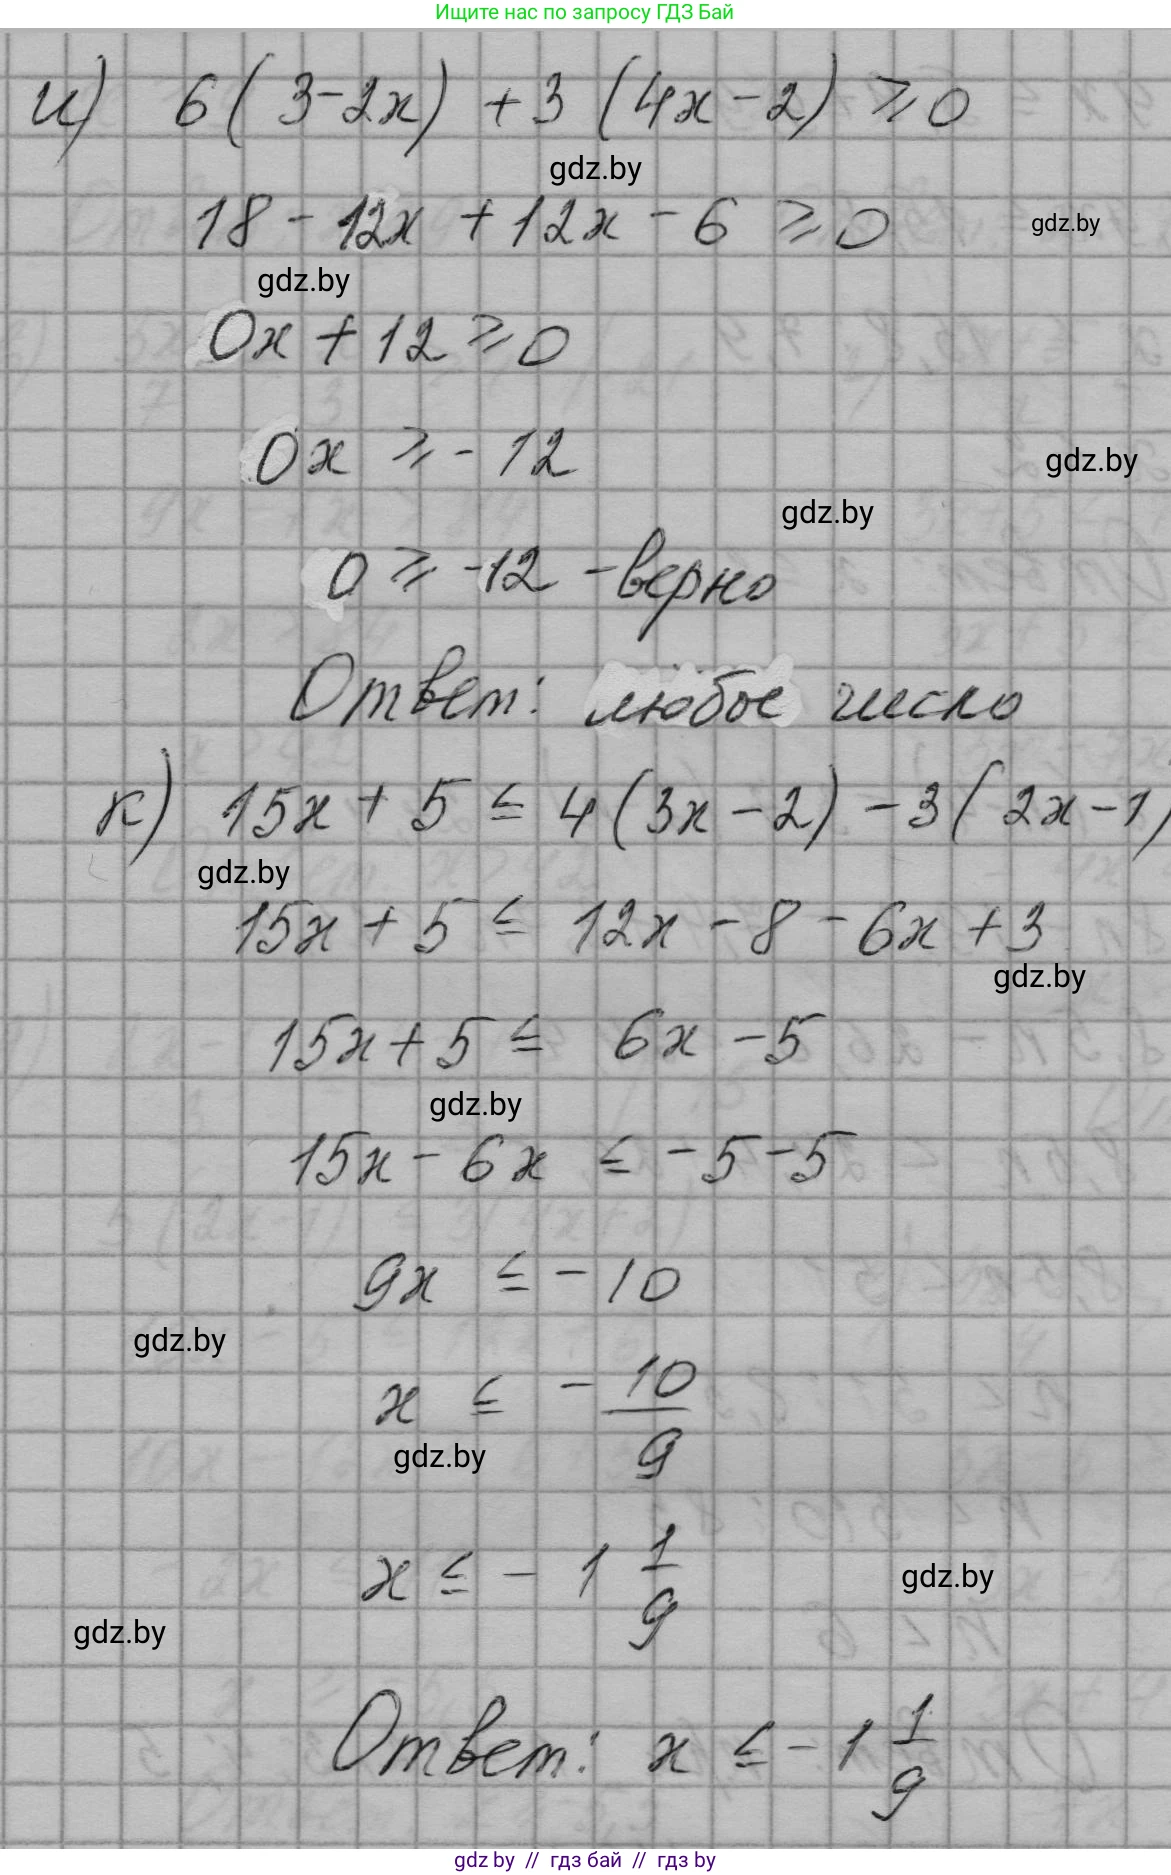 Ищите нас по запросу ГДЗ Бай
и) 6(3-2x)+3(4x-2)⩾0
gdz.by
18-12x+12x-6⩾0
gdz.by
gdz.by
0x+12⩾0
0x⩾-12
gdz.by
gdz.by
0⩾-12 - верно
Ответ: любое число
к) 15x+5≤4(3x-2)-3(2x-1)
gdz.by
15x+5≤12x-8-6x+3
gdz.by
15x+5≤6x-5
gdz.by
15x-6x≤-5-5
9x≤-10
gdz.by
x≤-10/9
gdz.by
x≤-1 1/9
gdz.by
gdz.by
Ответ: x≤-1 1/9
gdz by // гдз бай // гдз by